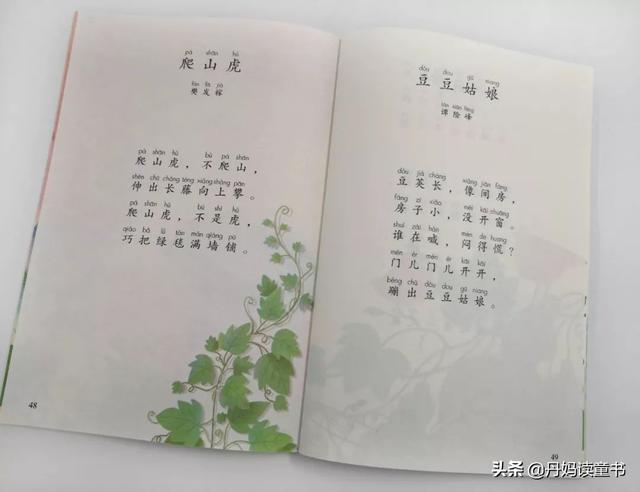 pá shān hǔ
爬山虎
fán fā jià
樊发稼
pá shān hǔ bù pá shān
爬山虎，不爬山，
shēn chū cháng téng xiàng shàng pān
伸出长藤向上攀。
pá shān hǔ bú shì hǔ
爬山虎，不是虎，
qiǎo bǎ lǜ tǎn mǎn qiáng pū
巧把绿毯满墙铺。
48
dòu dou gū niang
豆豆姑娘
tán xiǎn fēng
谭险峰
dòu jiá cháng xiàng jiān fáng
豆荚长，像间房，
fáng zi xiǎo méi kāi chuāng
房子小，没开窗。
shuí zài hǎn mēn de huang
谁在喊，闷得慌？
mén ér mén ér kāi kāi
门儿门儿开开，
bèng chū dòu dou gū niang
蹦出豆豆姑娘。
49
头条 @丹妈读童书